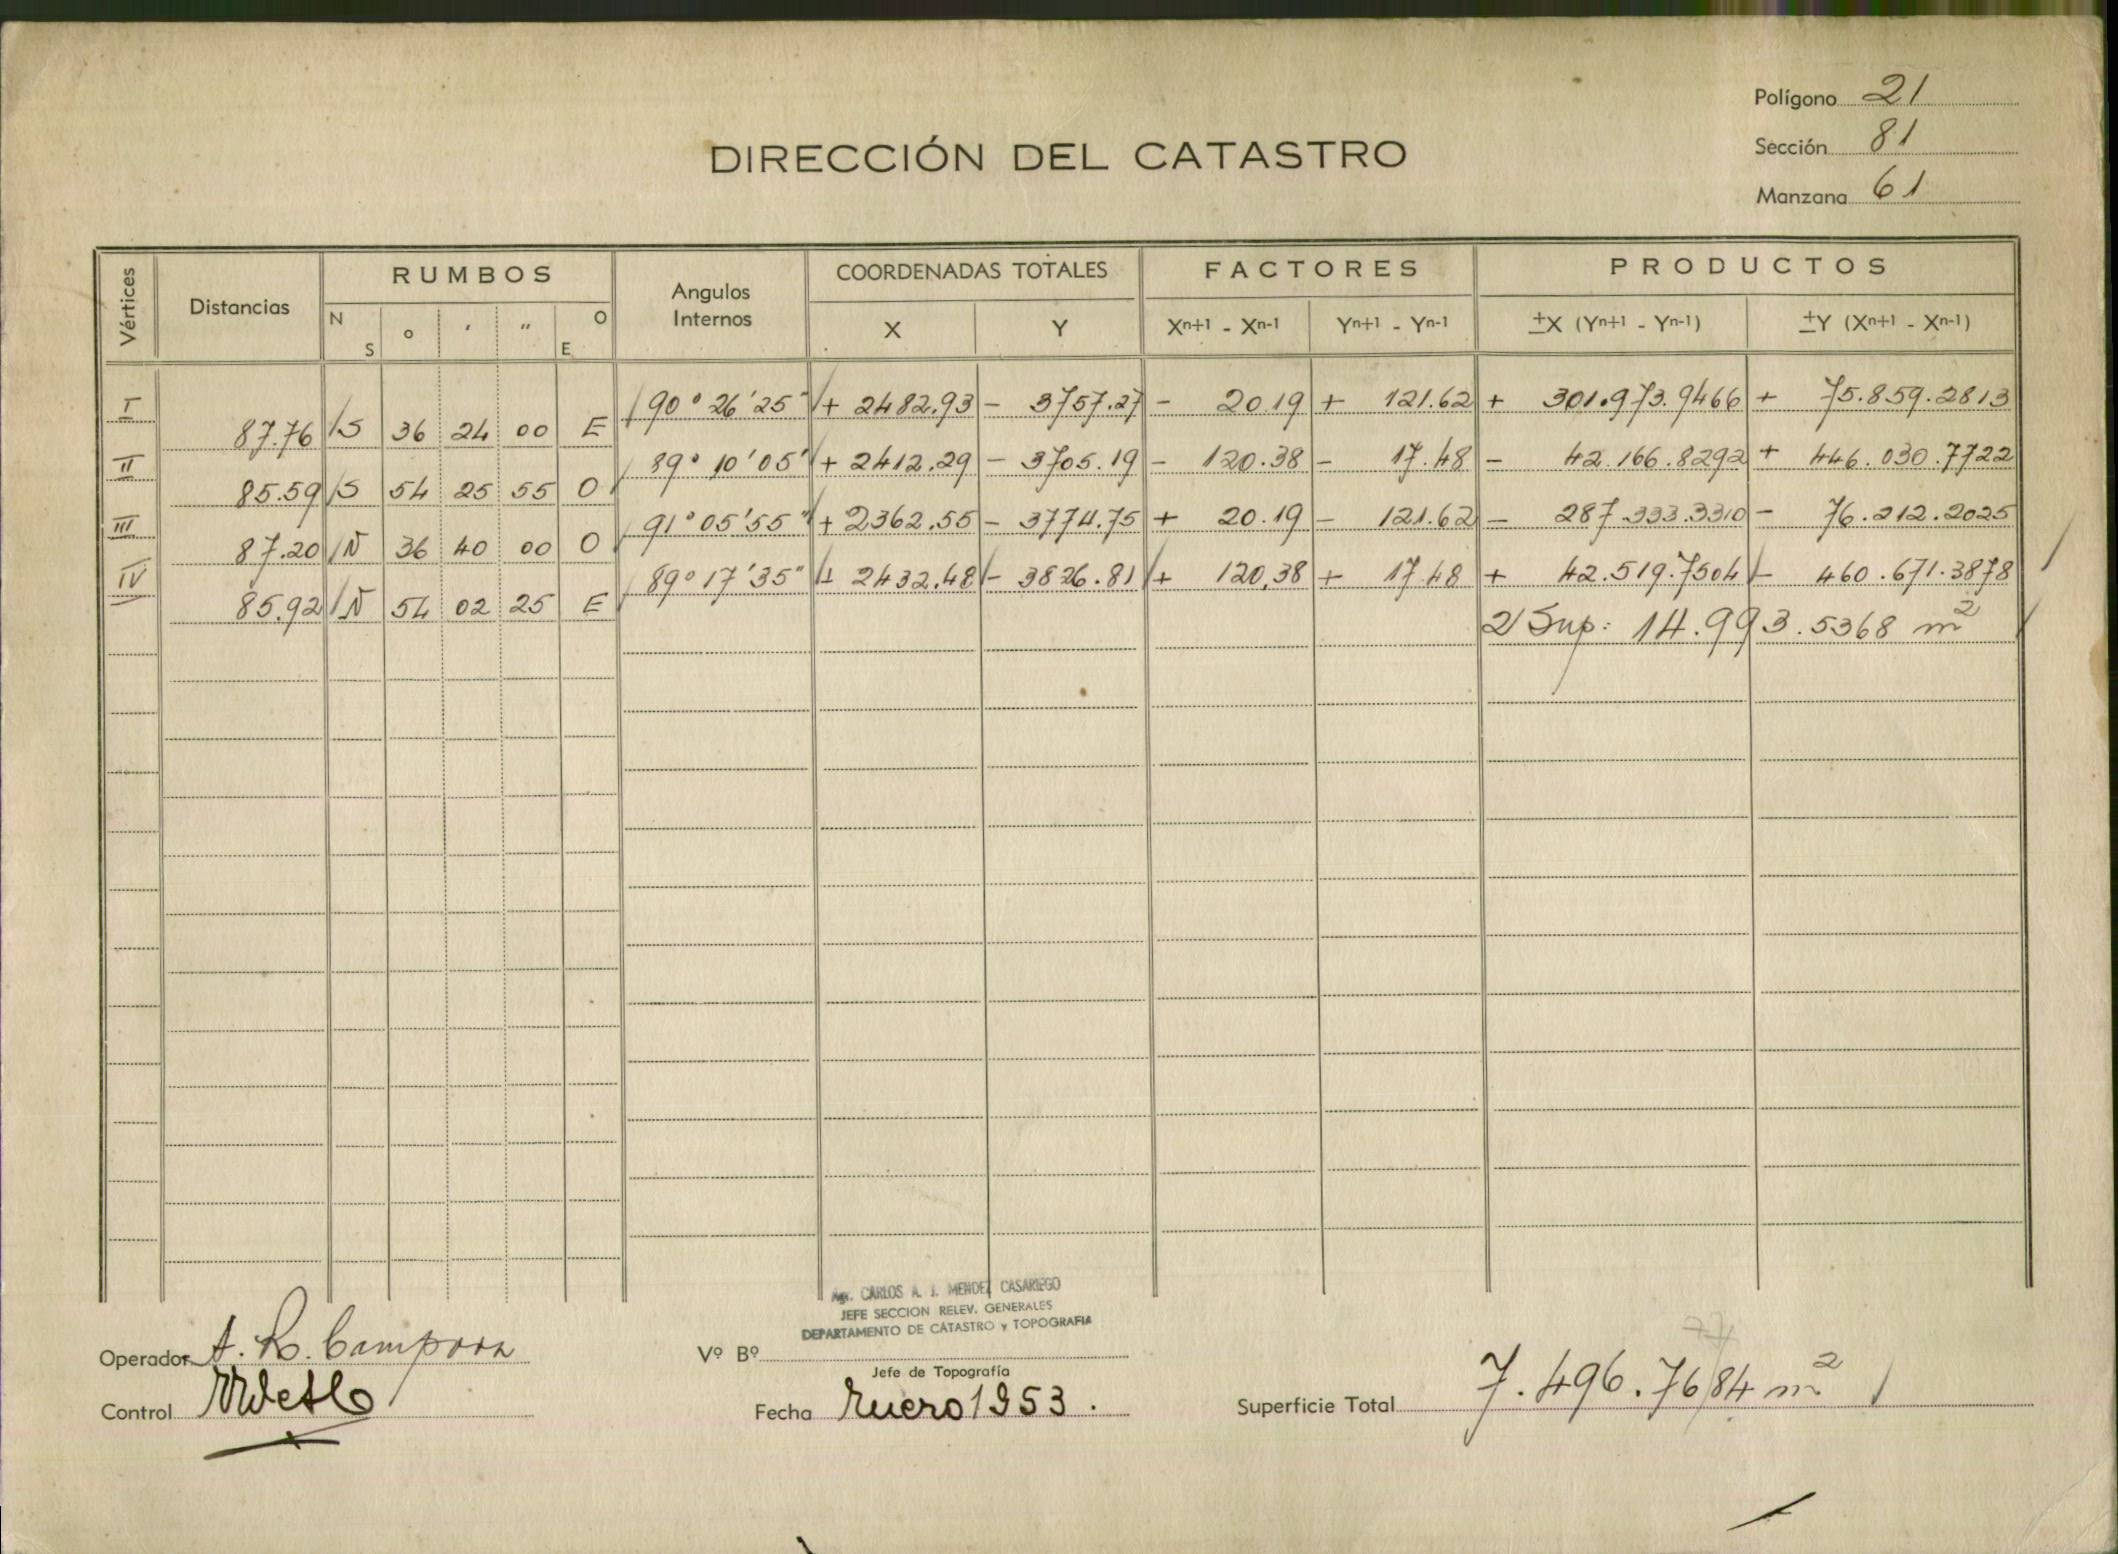 Polígono 21
DIRECCIÓN DEL CATASTRO
Sección 81
Manzana 61
Vértices Distancias RUMBOS Angulos Internos COORDENADAS TOTALES FACTORES PRODUCTOS
N S o ′ ″ O E X Y Xn+1 - Xn-1 Yn+1 - Yn-1 ±X (Yn+1 - Yn-1) ±Y (Xn+1 - Xn-1)
I 90° 26' 25" + 2482.93 - 3757.27 - 20.19 + 121.62 + 301.973.9466 + 75.859.2813
87.76 S 36 24 00 E
II 89° 10' 05" + 2412.29 - 3705.19 - 120.38 - 17.48 - 42.166.8292 + 446.030.7722
85.59 S 54 25 55 O
III 91° 05' 55" + 2362.55 - 3774.75 + 20.19 - 121.62 - 287.333.3310 - 76.212.2025
87.20 N 36 40 00 O
IV 89° 17' 35" + 2432.48 - 3826.81 + 120.38 + 17.48 + 42.519.7504 - 460.671.3878
85.92 N 54 02 25 E
2 Sup: 14.993.5368 m²
Agr. CARLOS A. J. MENDEZ CASARIEGO
JEFE SECCION RELEV. GENERALES
DEPARTAMENTO DE CATASTRO y TOPOGRAFIA
Operador A. R. Campora
Vº Bº
Jefe de Topografía
Control
Fecha Enero 1953.
77
Superficie Total 7.496.7684 m²